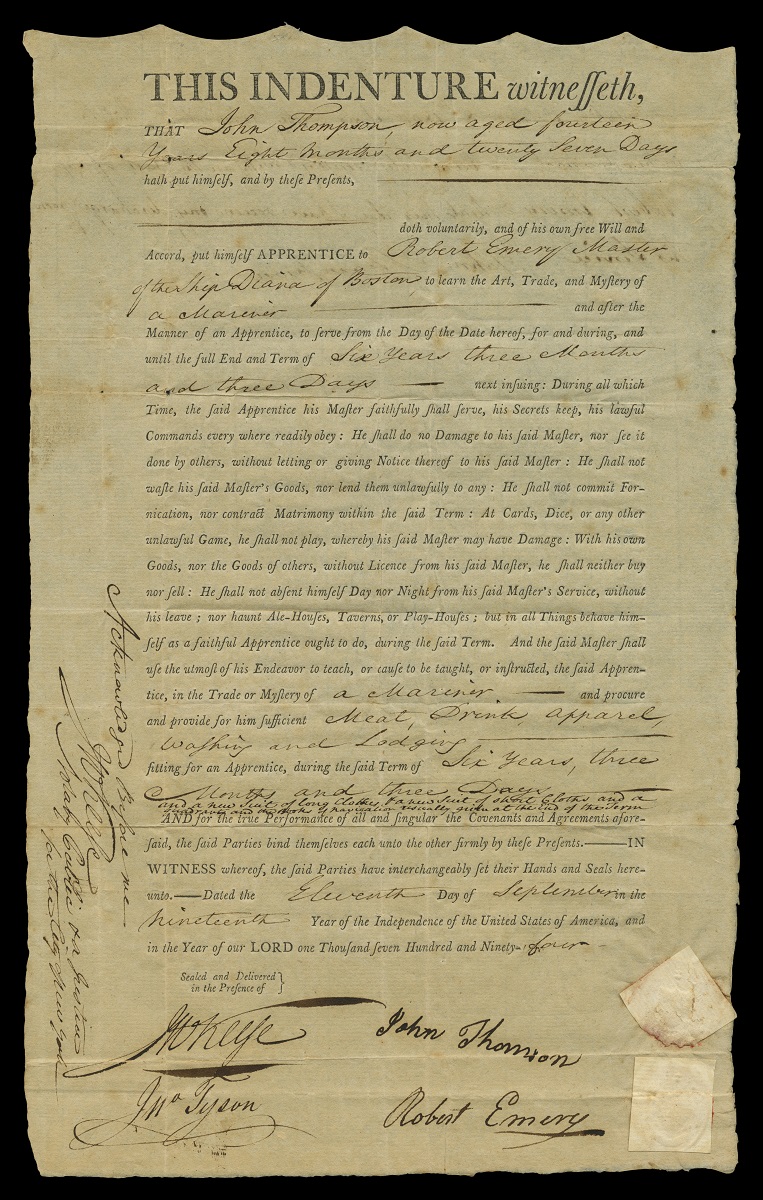 THIS INDENTURE witneſſeth,
THAT John Thompson, now aged fourteen
Years Eight Months and twenty Seven Days
hath put himſelf, and by theſe Preſents,
doth voluntarily, and of his own free Will and
Accord, put himſelf APPRENTICE to Robert Emery Master
of the Ship Diana of Boston to learn the Art, Trade, and Myſtery of
a Mariner and after the
Manner of an Apprentice, to ſerve from the Day of the Date hereof, for and during, and
until the full End and Term of Six Years three Months
and three Days next inſuing: During all which
Time, the ſaid Apprentice his Maſter faithfully ſhall ſerve, his Secrets keep, his lawful
Commands every where readily obey: He ſhall do no Damage to his ſaid Maſter, nor ſee it
done by others, without letting or giving Notice thereof to his ſaid Maſter: He ſhall not
waſte his ſaid Maſter's Goods, nor lend them unlawfully to any: He ſhall not commit For-
nication, nor contract Matrimony within the ſaid Term: At Cards, Dice, or any other
unlawful Game, he ſhall not play, whereby his ſaid Maſter may have Damage: With his own
Goods, nor the Goods of others, without Licence from his ſaid Maſter, he ſhall neither buy
nor ſell: He ſhall not abſent himſelf Day nor Night from his ſaid Maſter's Service, without
his leave; nor haunt Ale-Houſes, Taverns, or Play-Houſes; but in all Things behave him-
ſelf as a faithful Apprentice ought to do, during the ſaid Term. And the ſaid Maſter ſhall
uſe the utmoſt of his Endeavor to teach, or cauſe to be taught, or inſtructed, the ſaid Appren-
tice, in the Trade or Myſtery of a Mariner and procure
and provide for him ſufficient Meat, Drink, apparel,
Washing and Lodging
fitting for an Apprentice, during the ſaid Term of Six Years, three
Months and three Days
and a new Suit of long Clothes & a new Suit of short Cloths and a
Quadrant and the Books of Navigation usually given at the End of the Term
AND for the true Performance of all and ſingular the Covenants and Agreements afore-
ſaid, the ſaid Parties bind themſelves each unto the other firmly by theſe Preſents.——IN
WITNESS whereof, the ſaid Parties have interchangeably ſet their Hands and Seals here-
unto.——Dated the Eleventh Day of September in the
Nineteenth Year of the Independence of the United States of America, and
in the Year of our LORD one Thouſand ſeven Hundred and Ninety-four
Sealed and Delivered }
in the Preſence of }
John Thomson
Jno Tyson
Robert Emery
Acknowledged Before me
Notary Public & a Justice
for the City New York